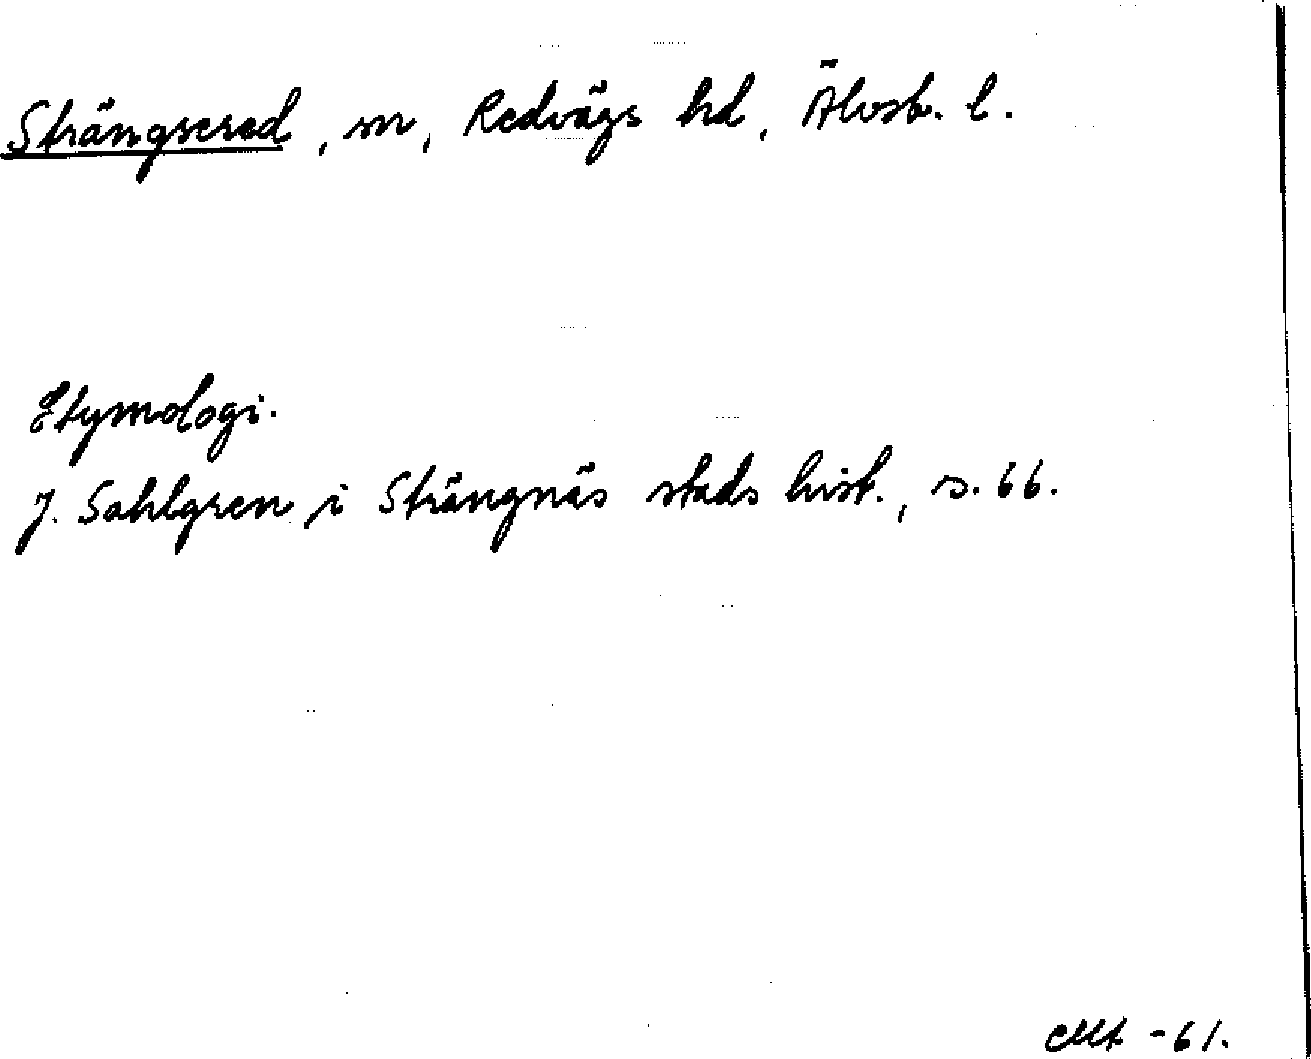 Strängsered, sn, Redvägs hd, Älvsb. l.
Etymologi.
J. Sahlgren i Strängnäs stads hist., s. 66.
-61.